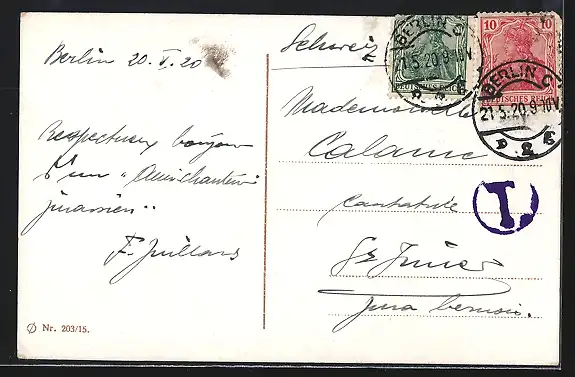 Berlin 20.V.20
Respectueux bonjour
d'un "
jurassien"
F. Juillard
Nr. 203/15.
Schweiz
BERLIN C
21.5.20.9-10V
10
BERLIN C
DEUTSCHES REICH
21.5.20.9-10V
Mademoiselle
Calame
Cantatrice
St. Imier
Jura bernois.
T.